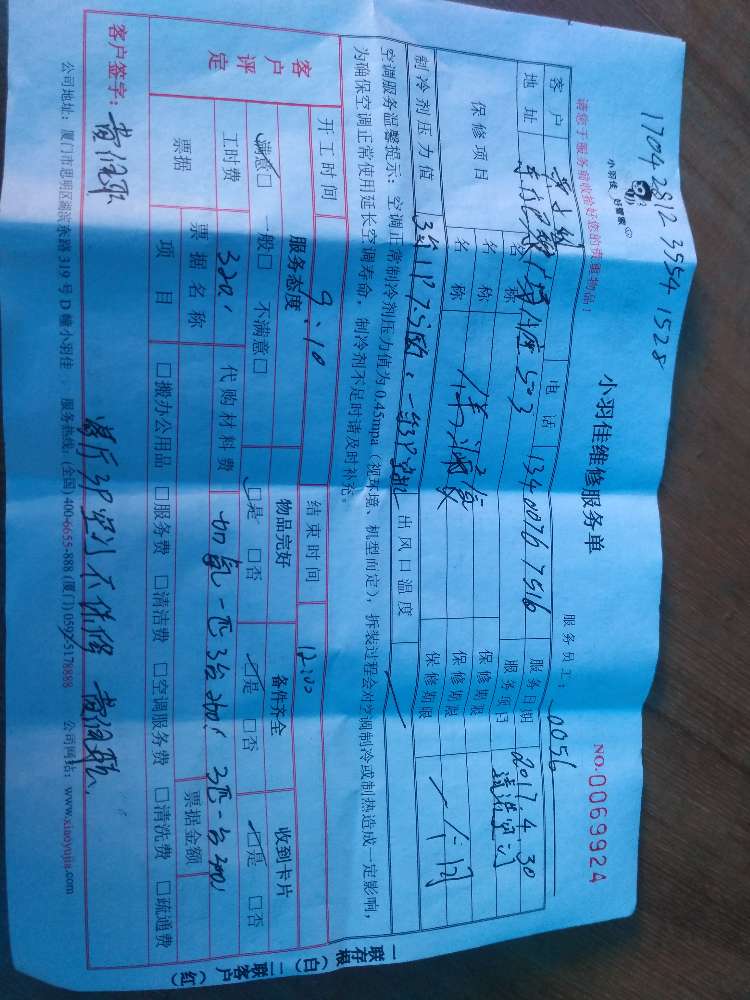 1704 2812 3554 1528
小羽佳 好管家
请您于服务前收拾好您的贵重物品!
小羽佳维修服务单
服务员工: 0056
NO.0069924
客户 电话 13400767516 服务日期 2017.4.30
地址 A座503 服务项目 清洗空调
保修项目 名称 保修期限
名称 保修期限 一个月
名称 保修期限
制冷剂压力值 出风口温度
空调服务温馨提示:空调正常制冷剂压力值为0.45mpa(视环境、机型而定),拆装过程会对空调制冷或制热造成一定影响,
为确保空调正常使用延长空调寿命,制冷剂不足时请及时补充。
开工时间 9:10 结束时间 12:00
客户评定 服务态度 物品完好 备件齐全 收到卡片
满意□ 一般□ 不满意□ □是 □否 □是 □否 □是 □否
工时费 320 代购材料费 加氟一匹3台200 3匹一台200
票据 票据名称 票据金额
项目 □搬办公用品 □服务费 □清洁费 □空调服务费 □清洗费 □疏通费
客户签字: 客厅3P空调不保修
公司地址:厦门市思明区湖滨东路319号D幢小羽佳 服务热线:(全国)400-6655-888 (厦门)0592-5178888 公司网站:www.xiaoyujia.com
一联存根(白) 二联客户(红)